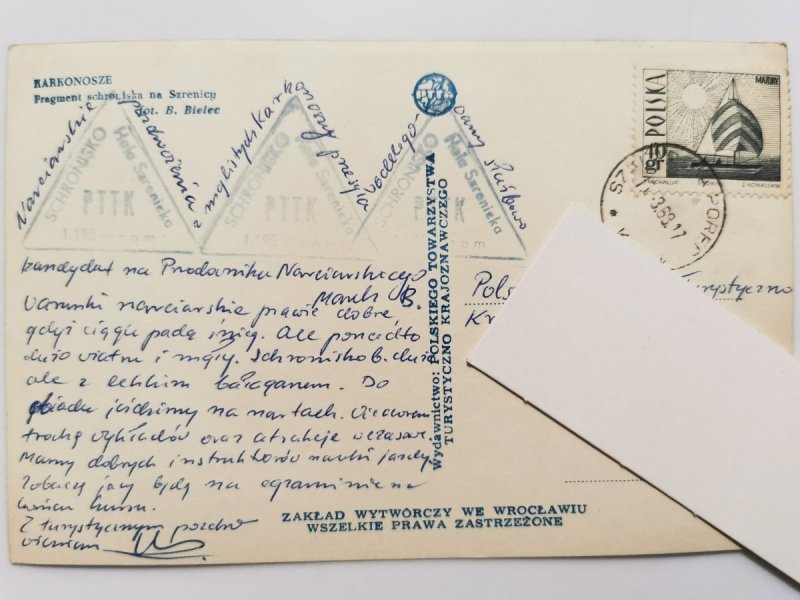 KARKONOSZE
Fragment schroniska na Szrenicy
fot. B. Bielec
PTTK
POLSKA
MAZURY
10 gr
SCHRONISKO PTTK Hala Szrenicka
1.195 m n.p.m.
SCHRONISKO PTTK Hala Szrenicka
1.195 m n.p.m.
SCHRONISKO PTTK Hala Szrenicka
Narciarskie pozdrowienia z mglistych Karkonoszy przesyła
kandydat na Przodownika Narciarskiego
Marek B.
Warunki narciarskie prawie dobre,
gdyż ciągle pada śnieg. Ale ponadto
dużo wiatru i mgły. Schronisko b. duże
ale z lekkim bałaganem. Do
obiadu jeździmy na nartach. Wieczorem
trochę wykładów oraz atrakcje wczasowe
Mamy dobrych instruktorów nauki jazdy.
Zobaczę jacy będą na egzaminie na
końcu kursu.
Z turystycznym pozdro
wieniem
Wydawnictwo: POLSKIEGO TOWARZYSTWA
TURYSTYCZNO KRAJOZNAWCZEGO
Pols
Kr
turystyczno
ZAKŁAD WYTWÓRCZY WE WROCŁAWIU
WSZELKIE PRAWA ZASTRZEŻONE